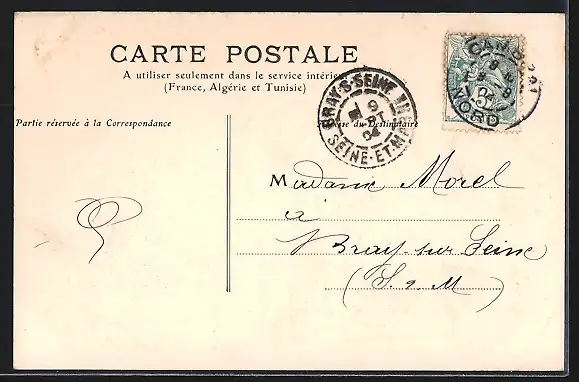 CARTE POSTALE
A utiliser seulement dans le service intérieur
(France, Algérie et Tunisie)
Partie réservée à la Correspondance
BRAY-S-SEINE
SEINE-ET-M
04
NORD
du Destinataire
Madame Morel
à
Bray-sur-Seine
(S. & M.)